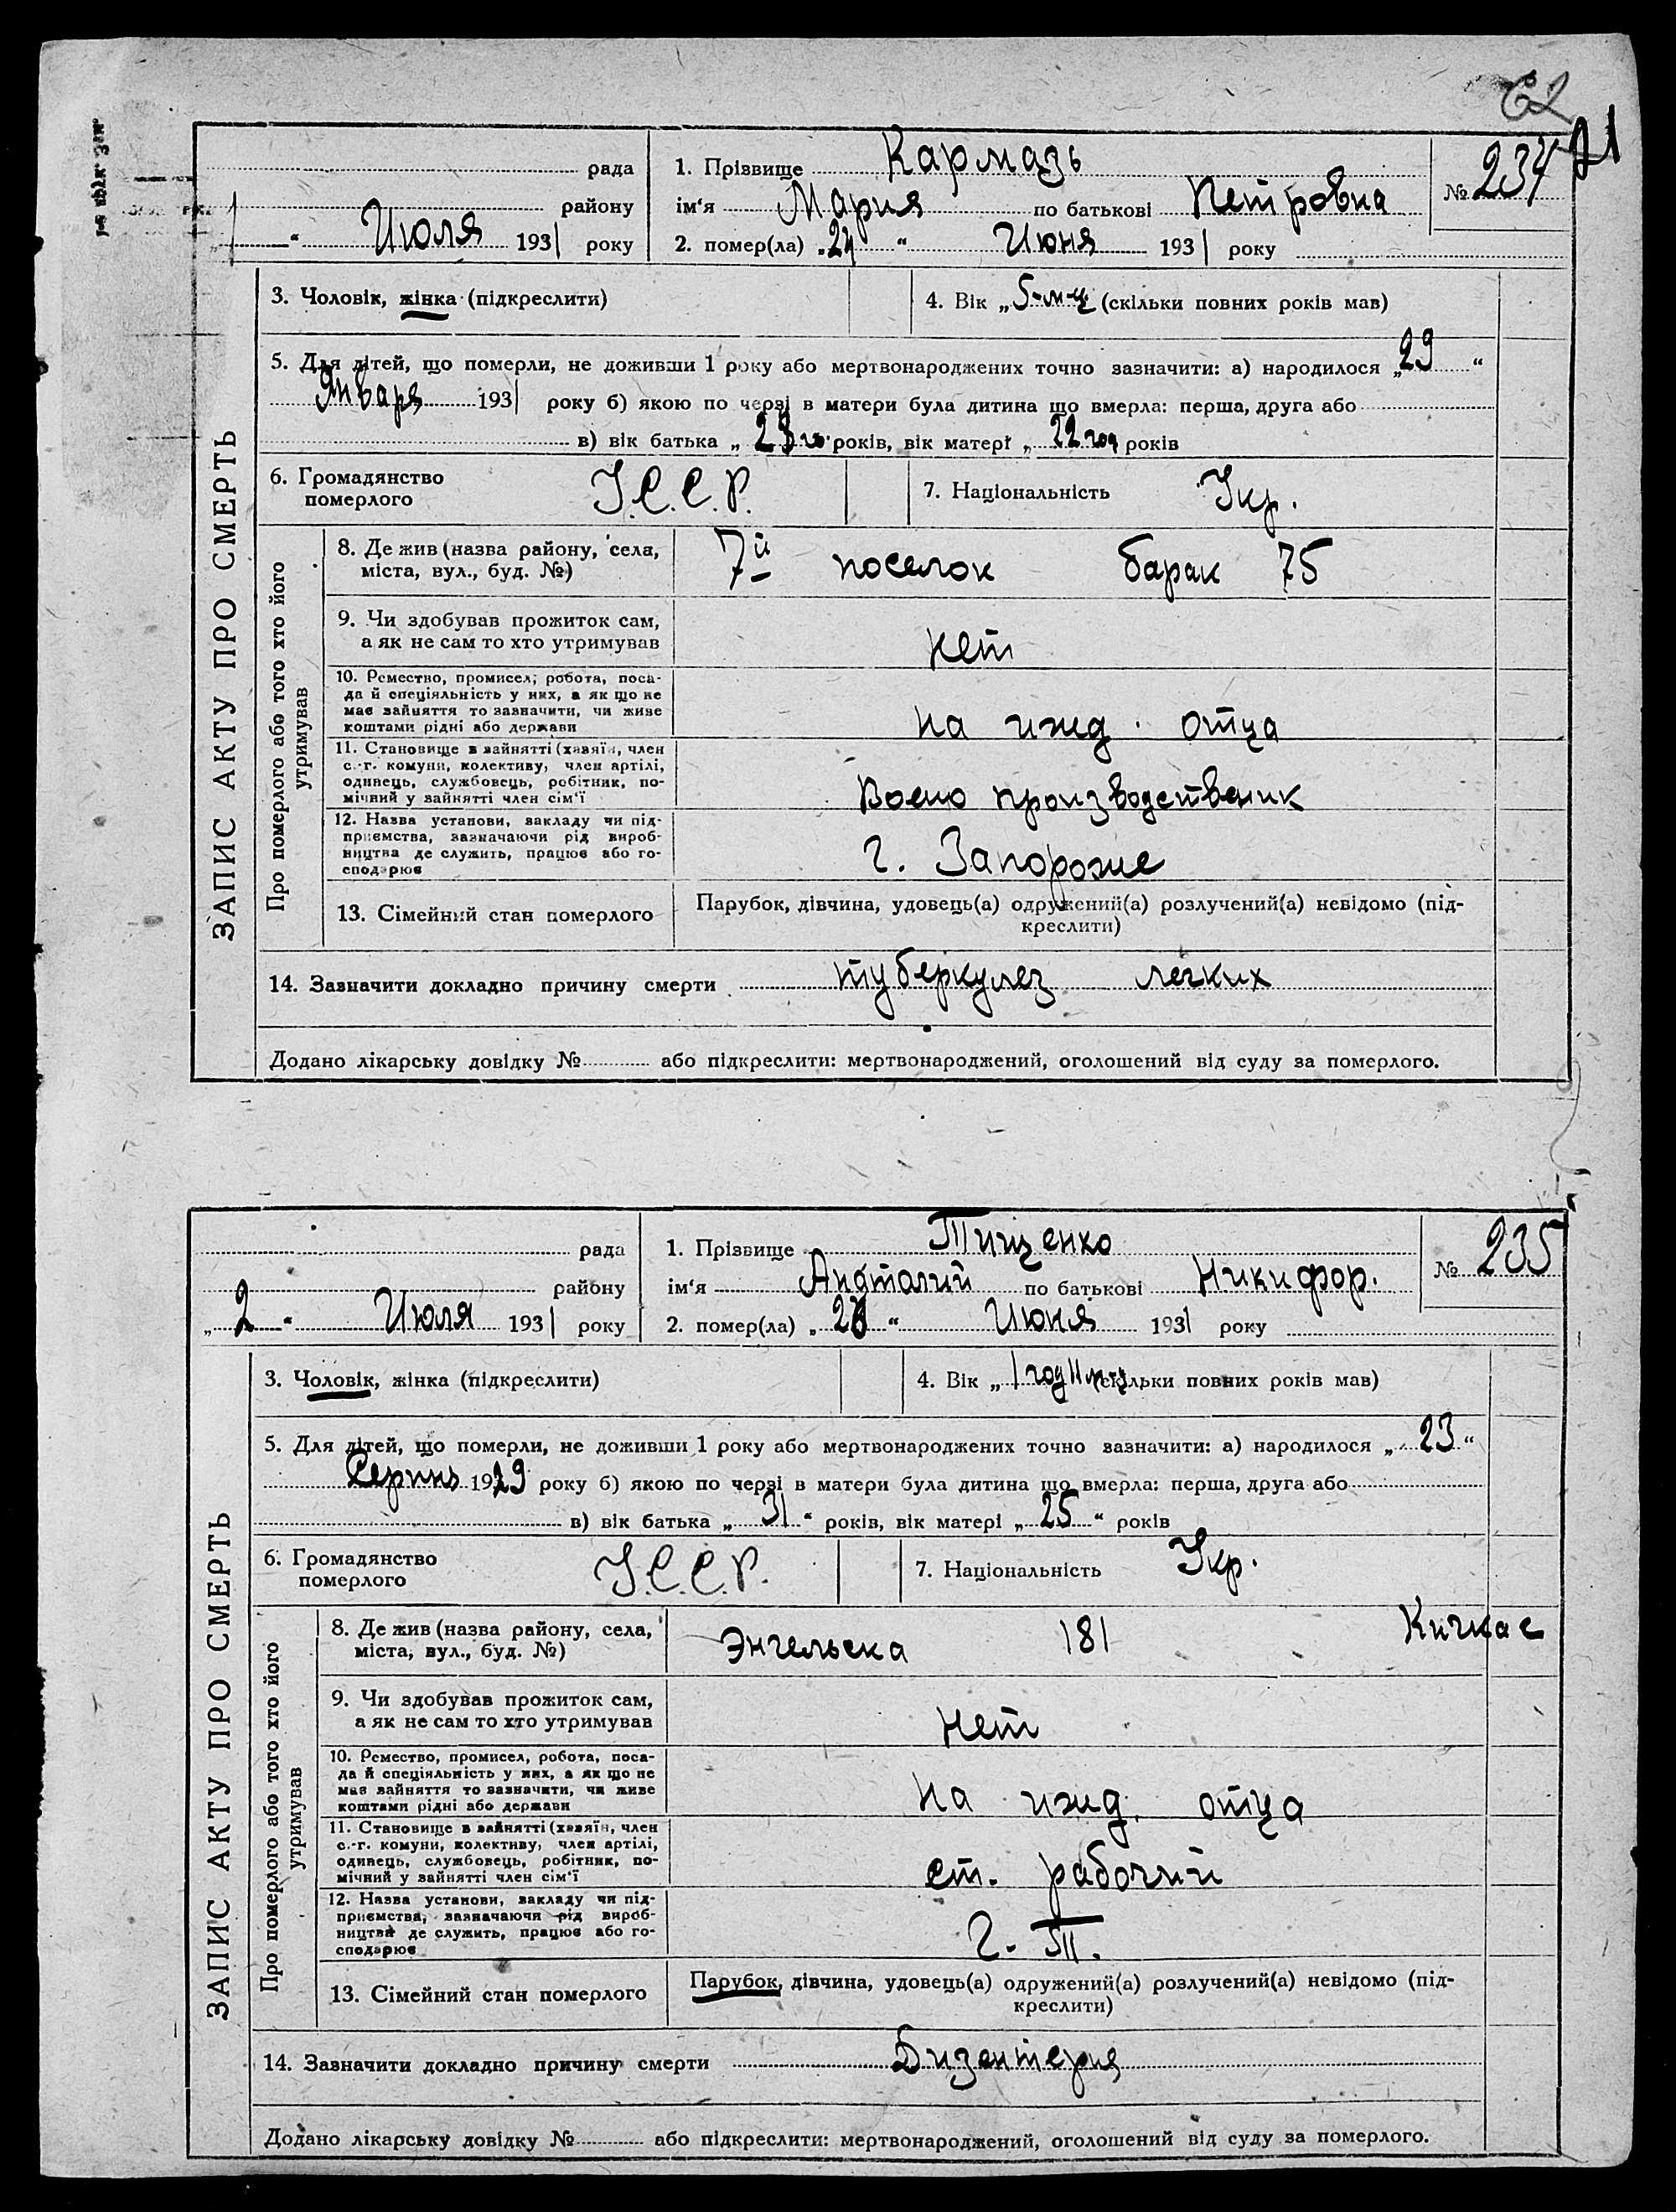 62
21
рада
1. Прізвище Кармазь
№ 234
району
ім‘я Мария по батькові Петровна
1 “ Июля 1931 року
2. помер(ла) „24 “ Июня 1931 року
3. Чоловік, жінка (підкреслити)
4. Вік „ 5-м-ц (скільки повних років мав)
5. Для дітей, що померли, не доживши 1 року або мертвонароджених точно зазначити: а) народилося „ 29 “
Января 1931 року б) якою по черзі в матери була дитина що вмерла: перша, друга або
в) вік батька „ 23 го. років, вік матері „ 22 год років
6. Громадянство
померлого
У.С.С.Р.
7. Національність Укр.
ЗАПИС АКТУ ПРО СМЕРТЬ
Про померлого або того хто його
утримував
8. Де жив (назва району, села,
міста, вул., буд. №)
7й поселок барак 75
9. Чи здобував прожиток сам,
а як не сам то хто утримував
нет
10. Ремество, промисел, робота, поса-
да й спеціяльність у них, а як що не
має зайняття то зазначити, чи живе
коштами рідні або держави
на ижд. отца
11. Становище в зайнятті (хазяїн, член
с.-г. комуни, колективу, член артілі,
одинець, службовець, робітник, по-
мічний у зайнятті член сім‘ї
Воено производственик
12. Назва установи, закладу чи під-
приємства, зазначаючи рід вироб-
ництва де служить, працює або го-
сподарює
г. Запороже
13. Сімейний стан померлого
Парубок, дівчина, удовець(а) одружений(а) розлучений(а) невідомо (під-
креслити)
14. Зазначити докладно причину смерти туберкулез легких
Додано лікарську довідку № або підкреслити: мертвонароджений, оголошений від суду за померлого.
рада
1. Прізвище Тищенко
№ 235
району
ім‘я Анатолий по батькові Никифор.
„ 2 “ Июля 1931 року
2. помер(ла) „ 28 “ Июня 1931 року
3. Чоловік, жінка (підкреслити)
4. Вік „ 1 год 11 м-ц (скільки повних років мав)
5. Для дітей, що померли, не доживши 1 року або мертвонароджених точно зазначити: а) народилося „ 23 “
Серпнь 1929 року б) якою по черзі в матери була дитина що вмерла: перша, друга або
в) вік батька „ 31 “ років, вік матері „ 25 “ років
6. Громадянство
померлого
У.С.С.Р.
7. Національність Укр.
ЗАПИС АКТУ ПРО СМЕРТЬ
Про померлого або того хто його
утримував
8. Де жив (назва району, села,
міста, вул., буд. №)
Энгельска 181 Кичкас
9. Чи здобував прожиток сам,
а як не сам то хто утримував
нет
10. Ремество, промисел, робота, поса-
да й спеціяльність у них, а як що не
має зайняття то зазначити, чи живе
коштами рідні або держави
на ижд. отца
11. Становище в зайнятті (хазяїн, член
с.-г. комуни, колективу, член артілі,
одинець, службовець, робітник, по-
мічний у зайнятті член сім‘ї
ст. рабочий
12. Назва установи, закладу чи під-
приємства, зазначаючи рід вироб-
ництва де служить, працює або го-
сподарює
13. Сімейний стан померлого
Парубок, дівчина, удовець(а) одружений(а) розлучений(а) невідомо (під-
креслити)
14. Зазначити докладно причину смерти Дизентерия
Додано лікарську довідку № або підкреслити: мертвонароджений, оголошений від суду за померлого.